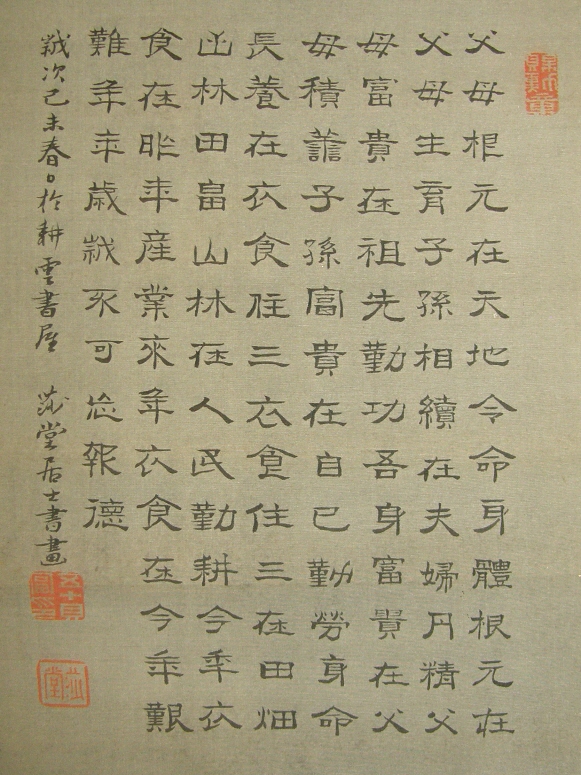 父母根元在天地令命身體根元在
父母生育子孫相續在夫婦丹精父
母富貴在祖先勤功吾身富貴在父
母積譱子孫富貴在自己勤勞身命
長養在衣食住三衣食住三在田畑
山林田畠山林在人民勤耕今年衣
食在昨年産業來年衣食在今年艱
難年年歳歳不可忘報德
歳次己未春日於耕雲書屋 莎堂居士書畫
莎堂